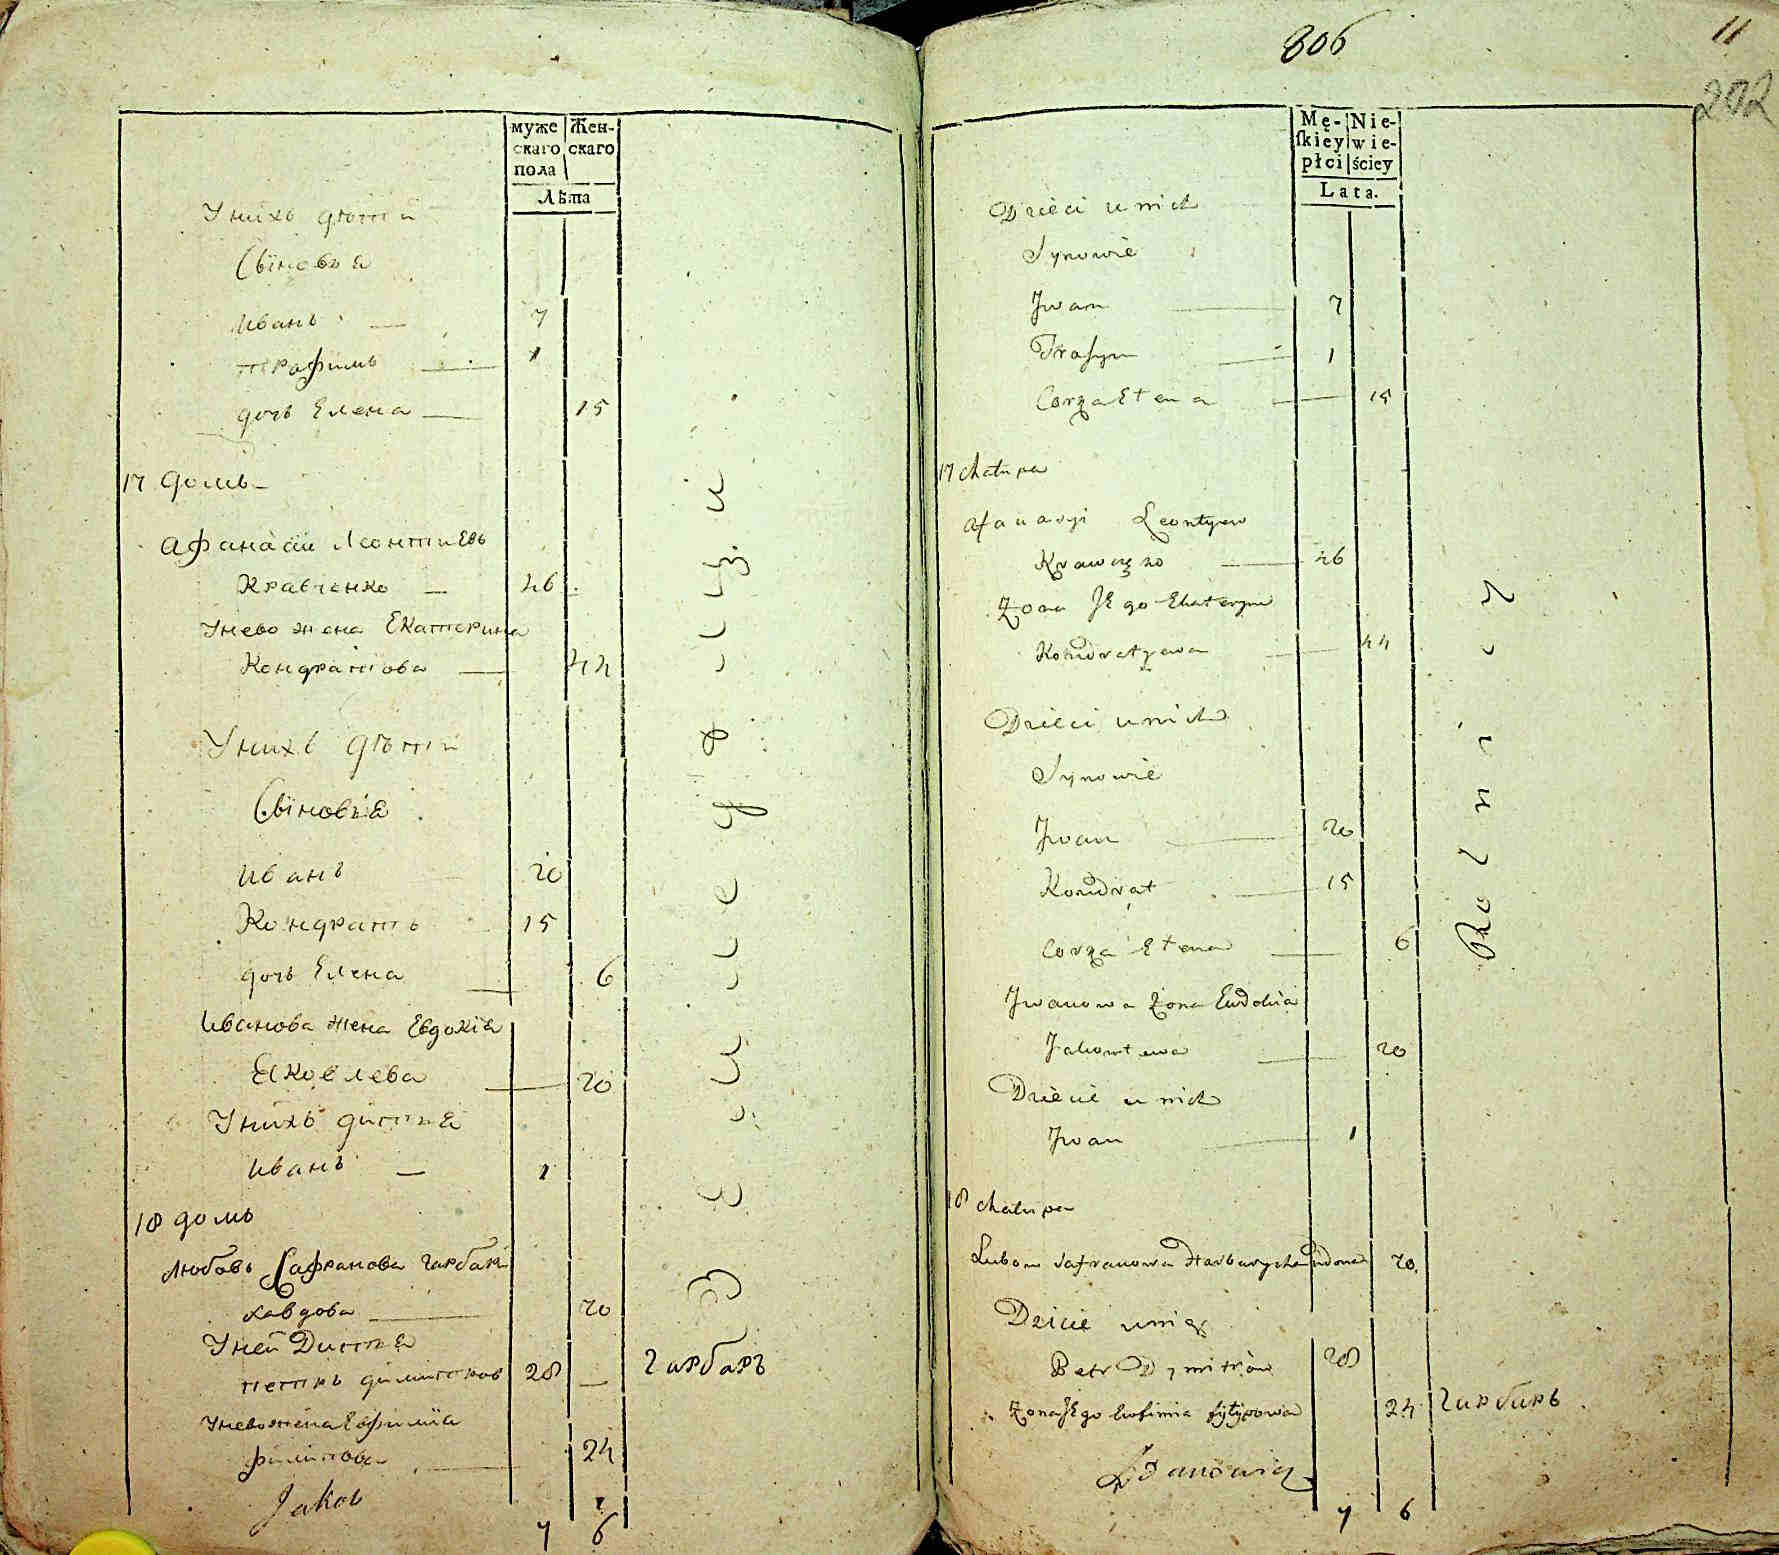 муже
скаго
пола
Жен-
скаго
Лѣта
Унихъ дѣти
Сыновья
Иванъ — 7
трафимъ — 1
дочь Елена — 15
17 домъ
Афанасiи Леонтиевъ
Кравченко — 46
Унево жена Екатерина
Кондратова — 44
Унихъ дѣти
Сыновья
Иванъ 20
Кондратъ 15
дочь Елена — 6
Иванова жена Евдокiя
Яковлева — 20
Унихъ дитя
Иванъ — 1
18 домъ
Любовь Сафранова гарбари
ха вдова — 70
Уней Дитя
петръ димитровъ 28 —
Гарбаръ
Унево жена Ефимiя
филипова — 24
Jakob
7 6
806
11
202
Mę-
ſkiey
płci
Nie-
wie-
ściey
Lata.
Dzieci u nich
Synowie
Jwan — 7
Trafym — 1
Corza Elena — 15
17 chałupa
Afanasyi Leontyew
Krawczęko — 46
Zona Jego Ekateryna
Kondratyewa — 44
Dzieci u nich
Synowie
Jwan — 20
Kondrat — 15
Corza Elena — 6
Jwanowa Zona Eudokia
Jakowlewa — 20
Dziecie u nich
Jwan — 1
Rolnicy
18 chałupa
Lubow Safranowa Harbarycha wdowa 70
Dziecie u niey
Petr Dymitrow 28
Zona Jego Eufimia Fylypowa 24
Гарбаръ
7 6